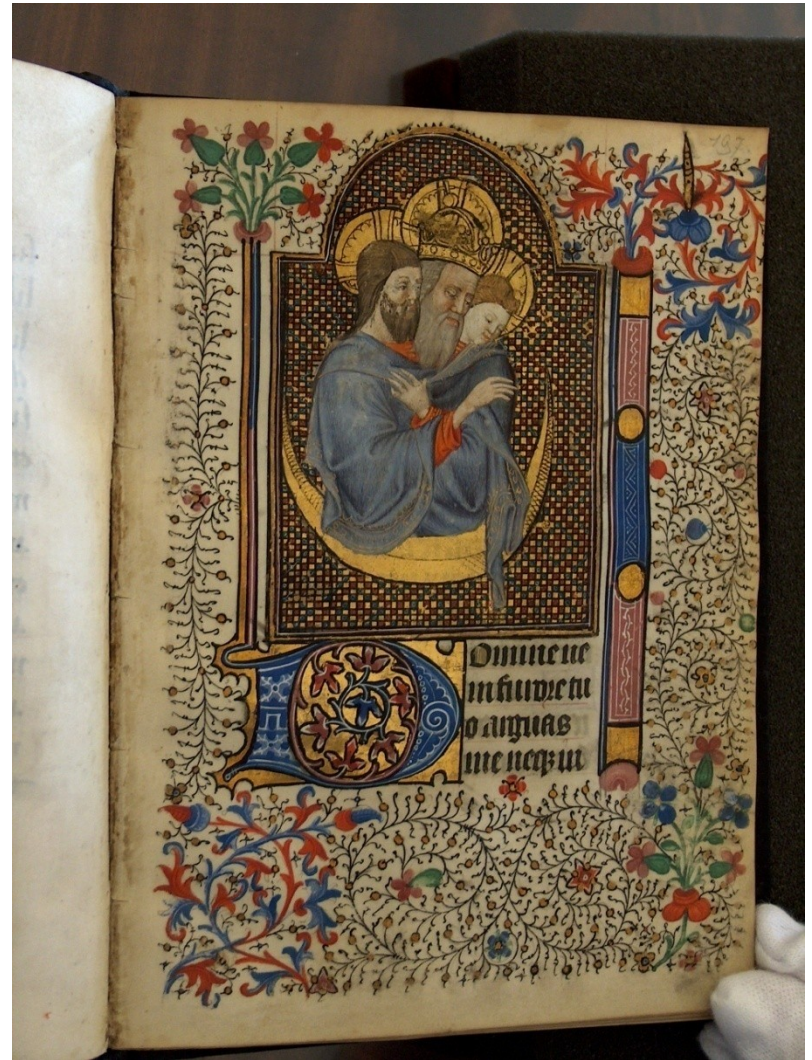 Domine ne
in furore tu
o arguas
me neqꝫ in